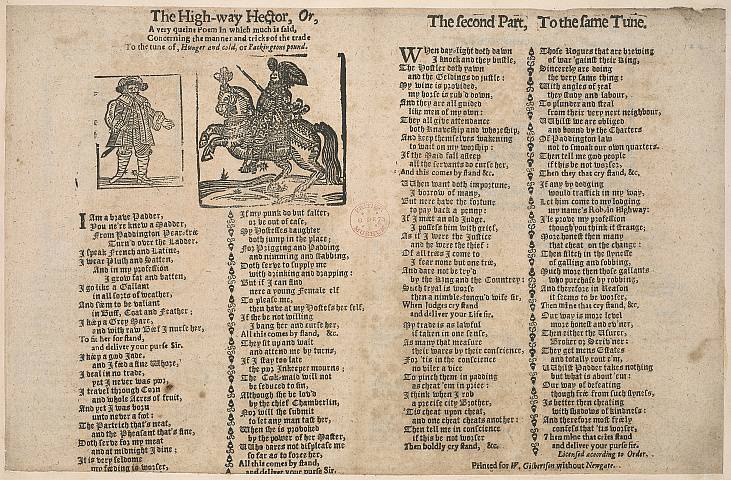 The High-way Hector, Or,
A very queint Poem in which much is said,
Concerning the manner and tricks of the trade
To the tune of, Hunger and cold, or Packingtons pound.
I Am a brave Padder,
You ne'er knew a Madder,
From Paddington Pear-tree
Turn'd over the Ladder.
I speak French and Latine,
I wear Plush and Satten,
And in my profession
I grow fat and batten,
I go like a Gallant
in all sorts of weather,
And seem to be valiant
in Buff, Coat and Feather;
I keep a Grey Mare,
and with raw Beef I nurse her,
To fit her for stand,
and deliver your purse Sir.
I keep a god Jade,
And I feed a fine Whore,
I deal in no trade,
yet I never was poor,
I travel through Corn
and whole Acres of fruit,
And yet I was born
unto never a foot:
The Partrich that's neat,
and the Pheasant that's fine,
Doth serve for my meat
and at midnight I dine;
It is very seldome
my feeding is worser,
If my punk do but falter,
or be out of case,
My Hostesses daughter
doth jump in the place;
For Prigging and Padding
and nimming and stabbing,
Doth serve to supply me
with drinking and drapping:
But if I can find
nere a young Female elf
To please me,
then have at my Hostess her self,
If she be not willing
I bang her and curse her,
All this comes by stand, &c.
They sit up and wait
and attend me by turns,
If I stay too late
the poor Inkeeper mourns;
The Cok-maid will not
be seduced to sin,
Although she be lov'd
by the chief Chamberlin,
Nor will she submit
to let any man task her,
When she is provoked
by the power of her Master,
Who dares not displease me
so far as to force her,
All this comes by stand,
and deliver your purse Sir.
The second Part, To the same Tune.
When day-light doth dawn
I knock and they bustle,
The Hostler doth yawn
and the Geldings do justle:
My wine is provided,
my horse is rub'd down,
And they are all guided
like men of my own:
They all give attendance
both Knaveship and Whoreship,
And keep themselves wakening
to wait on my worship:
If the Maid fall asleep
all the servants do curse her,
And this comes by stand &c.
When want doth importune,
I borrow of many,
But nere have the fortune
to pay back a penny:
If I met an old Judge,
I possess him with grief,
As if I were the Justice
and he were the thief:
Of all trees I come to
I fear none but one tree,
And dare not be try'd
by the King and the Countrey:
Such tryal is worse
then a nimble-tongu'd wife sir,
When Judges cry stand
and deliver your Life sir.
My trade is as lawful
if taken in one sense,
As many that measure
their wares by their conscience,
For 'tis in the conscience
no viler a vice
To pinch them in padding
as cheat 'em in price:
I think when I rob
a precise city Brother,
'Tis cheat upon cheat,
and one cheat cheats another:
Then tell me in conscience
if this be not worser
Then boldly cry stand, &c.
Those Rogues that are brewing
of war 'gainst their King,
Sincerely are doing
the very same thing:
With angles of zeal
they study and labour,
To plunder and steal
from their very next neighbour,
Whilst we are obliged
and bound by the Charters
Of Paddington law
not to smoak our own quarters.
Then tell me god people
if this be not worser,
Then they that cry stand, &c.
If any by dodging
would traffick in my way,
Let him come to my lodging
my name's Rob. in Highway:
Ile prove my profession
though you think it strange;
More honest then many
that cheat on the change:
Then stitch in the synness
of galling and sobbing,
Much more then those gallants
who purchase by robbing,
And therefore in Reason
it seems to be worser,
Then mine that cry stand, &c.
Our way is more level
more honest and ev'ner,
Then either the Usurer,
Broker or Scriv'ner:
They get mens Estates
and totally rout e'm,
Whilst Padder takes nothing
but what is about 'em:
Our way of defeating
though free from such fyness,
Is better then cheating
with shadows of kindness:
And therefore most freely
confess that 'tis worser,
Then mine that cries stand
and deliver your purse sir.
Licensed according to Order.
Printed for W. Gilbertson without Newgate.